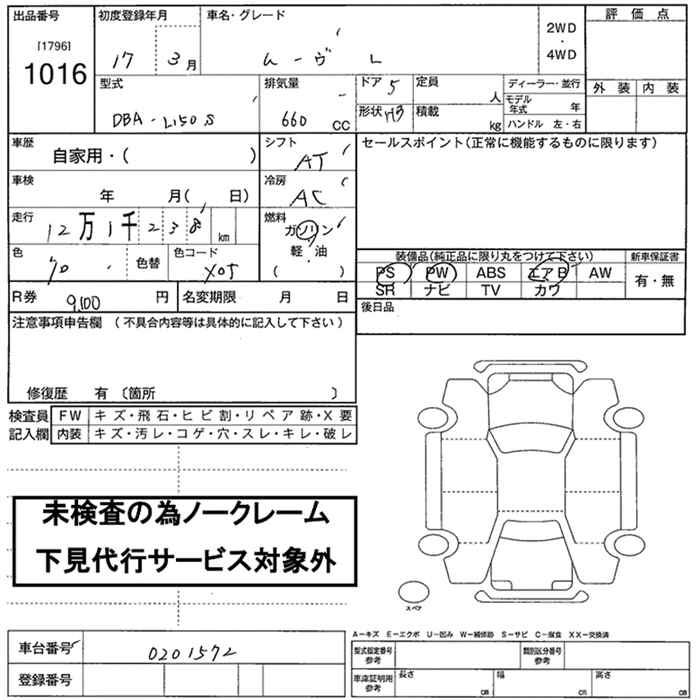 出品番号 初度登録年月 車名・グレード 評価点
[1796]
1016
17 3月 ムーヴ L 2WD・4WD
外装 内装
型式 排気量 ドア 5 定員 人 ディーラー・並行
モデル年式 年
DBA-L150S 660 CC 形状 積載 kg ハンドル 左・右
車歴 シフト セールスポイント(正常に機能するものに限ります)
自家用・( ) AT
車検 冷房
年 月( 日) AC
走行 燃料
12万1千238km ガソリン
軽油
( )
色 色替 色コード 装備品(純正品に限り丸をつけて下さい) 新車保証書
X05 PS PW ABS エアB AW 有・無
SR ナビ TV カワ
R券 9,100円 名変期限 月 日 後日品
注意事項申告欄 (不具合内容等は具体的に記入して下さい)
修復歴 有 〔箇所 〕
検査員 FW キズ・飛石・ヒビ割・リペア跡・X要
記入欄 内装 キズ・汚レ・コゲ・穴・スレ・キレ・破レ
未検査の為ノークレーム
下見代行サービス対象外
スペア
A−キズ E−エクボ U−凹み W−補修跡 S−サビ C−腐食 XX−交換済
車台番号 0201572 型式指定番号 参考 類別区分番号 参考
登録番号 車庫証明用 参考 長さ cm 幅 cm 高さ cm